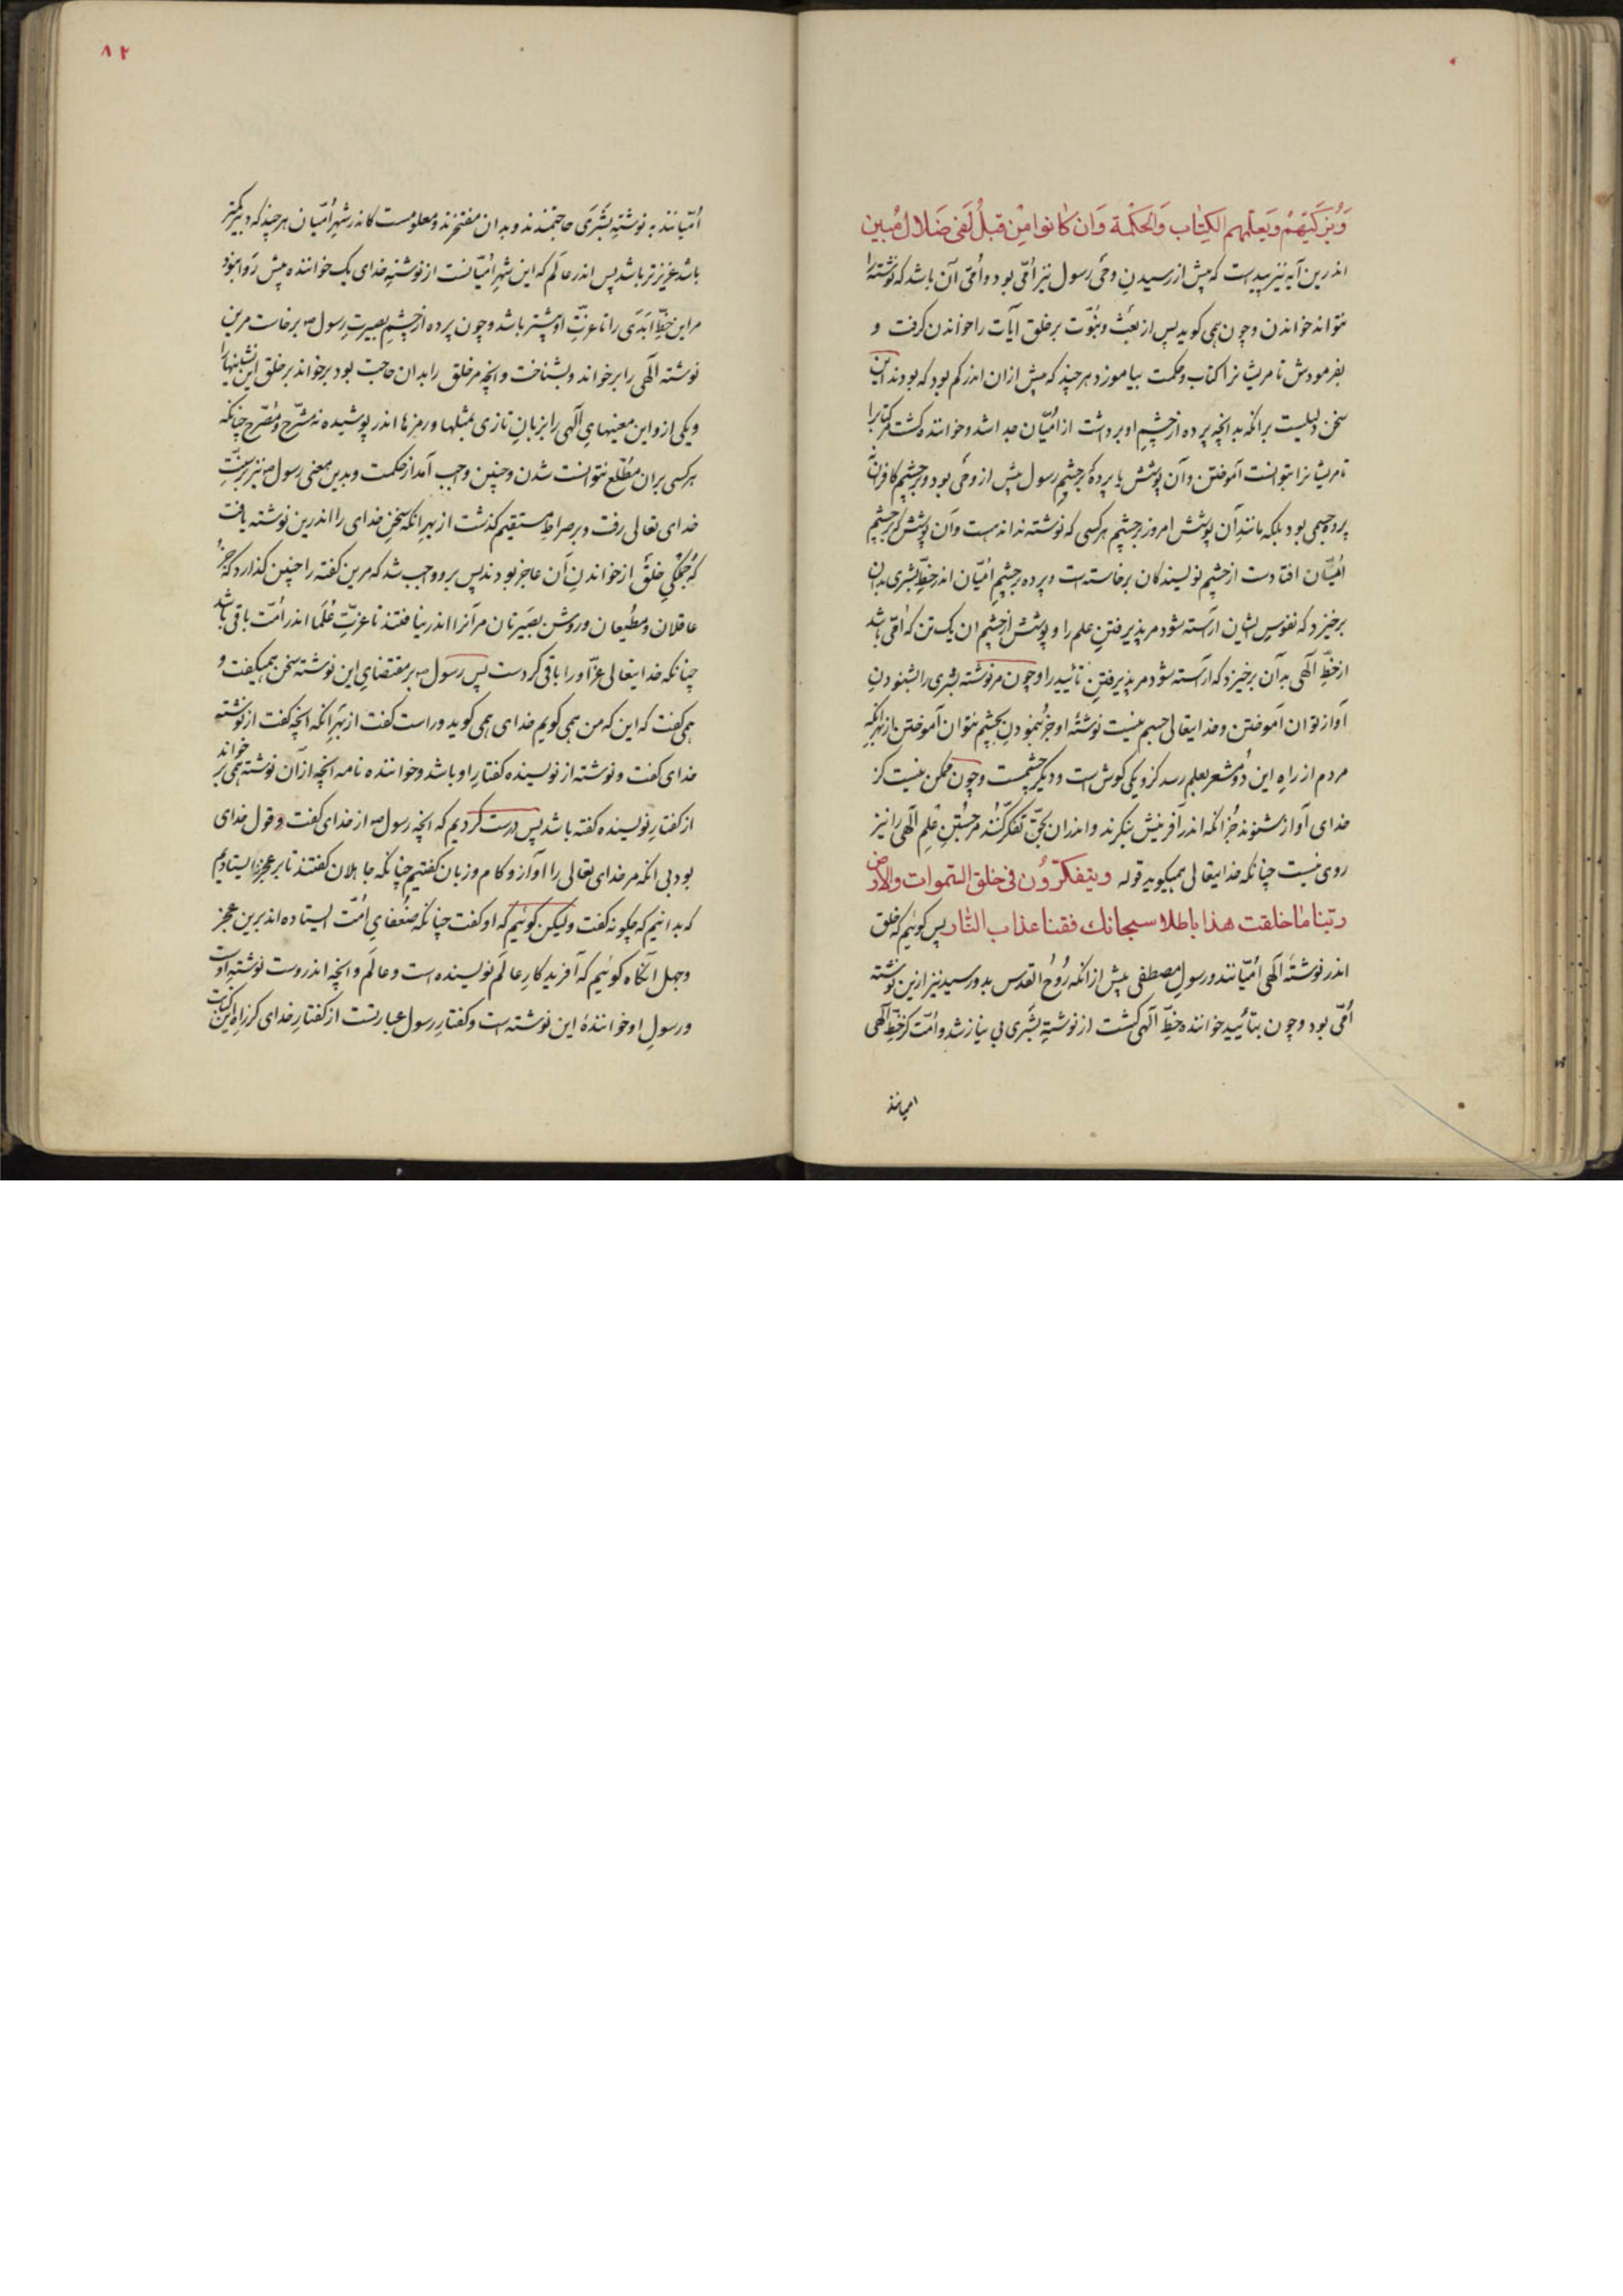 وَیُزَکّیهِمْ وَیُعَلّمُهُم الکِتٰابَ وَالحِکْمَة وَان کٰانوا مِن قبلُ لَفی ضَلال مُبین
اندرین آیه نیز پیداست که پیش از رسیدنِ وحَی رسول نیز اُمّی بوده و اُمّی آن باشد که نوشته را
نتواند خواندن و چون همی کوید پس از بعَثْ و نُبوّت بر خلق آیات را خواندن کرفت و
بفرمودش تا مریشانرا کتاب و حکمت بیاموزد هرچند که پیش از ان اندر کم بودکه بودند این
سخن دلیلیست برانکه بدانچه پرده از چشمِ او برداشت از اُمّیّان جدا شد و خواننده کشت مر کتابرا
تا مریشانرا بتوانست آموختن و آن پوشش یا پردهٔ که بر چشم رسول پیش از وحَی بود و بر چشم کافران
پرده جسمی بود بلکه مانندِ آن پوشش امروز بر چشم هرکسی که نوشته نداند هست و آن پوشش که بر چشم
اُمّیّان افتادست از چشم نویسندکان برخاستست و پرده بر چشم اُمّیّان اندر خطّ بشری بدان
برخیزد که نفوسِ ایشان آراسته شود مر پذیرفتن علم را و پوشش از چشم ان یک تن که اُمّی باشد
از خطّ الٓهی بدآن برخیزد که آراسته شود مر پذیرفتنِ تأیید را و چون مر نوشته بشری را بشنودنِ
آواز توان آموختن و خدایتعالی جسم نیست نوشتهٔ او جز بنمودنِ بچشم نتوان آموختن از بهر انکه
مردم از راهِ این دو مشعر بعلم رسد کزو یکی کوش است و دیکر چشمست و چون ممکن نیست کز
خدای آواز شنوند جُز انکه اندر آفرینش بنکرند و اندران بحقّ تفکّر کنُند مر جُستن علِم الٓهی را نیز
روی نیست چنانکه خدایتعالی همیکوید قوله ویتفکّرُون فی خلق السّموات والارض
ربّنا مٰا خلقت هذا باطلا سبحانك فقنا عذاب النّار پس کوئیم که خلق
اندر نوشتهٔ الٓهی اُمّیّانند و رسولِ مصطفی پیش ازانکه رُوُح القدس بدو رسید نیز ازین نوشته
اُمّی بود و چون بتأیید خواننده خطّ الٓهی کشت از نوشتهِ بشَری بی نیاز شد و اُمّت کز خطّ الٓهی
امیانند
۸۲
اُمّیّانند به نوشتهِ بشَرَی حاجتمندند و بدان مفتخرند و معلومست کاندر شهرِ اُمّیّان هرچند که دبیر کمتر
باشد عزیزتر باشد پس اندر عالَم که این شهرِ اُمّیّانست از نوشتهِ خدای یک خواننده بیش روا نبود
مر این خطّ اَبَدَی را تا عزّتِ او بیشتر باشد و چون پرده از چشم بصیرت رسول ص برخاست مرین
نوشته الٓهی را برخواند و بشناخت و انچه مر خلق را بدان حاجت بود برخواند بر خلق ازین نبشتنیها را
و یکی ازو این معنیهایِ الٓهی را بزبانِ تازی بمثلها و رمزها اندر پوشیده نه مشرّح و مُصّرح چنانکه
هرکسی بران مطّلع نتوانست شدن و چنین واجب آمد از حکمت و بدین معنی رسول ص نیز بر سنّتِ
خدای تعالی رفت و بر صراطِ مستقیم کذشت از بهرِ انکه سخنِ خدای را اندرین نوشته یافت
که جُمکیِ خلق از خواندنِ آن عاجز بودند پس برو واجب شد که مرین کفته را چنین کذارد که جز
عاقلان و مطیعان و روشن بصیَرتان مر آنرا اندر نیافتند تا عزیّتِ عُلَما اندر اُمّت باقی باشد
چنانکه خدایتعالی عزّ او را باقی کردست پس رسول ص بر مقتضایِ این نوشته سخن همیکفت و
همی کفت که این که من همی کویم خدای همی کوید و راست کفت از بهَرِ انکه انچه کفت از نوشته
خدای کفت و نوشته از نویسنده کفتارِ او باشد و خواننده نامه انچه ازآن نوشته همی برخواند
از کفتارِ نویسنده کفته باشد پس درست کردیم که انچه رسول ص از خدای کفت و قول خدای
بود بی انکه مر خدای تعالی را آواز و کام و زبان کفتیم چنانکه جاهلان کفتند تا بر عجز بایستادیم
که بدانیم که چکونه کفت ولیکن کوئیم که او کفت چنانکه ضُعفایِ اُمّت ایستاده اند برین عجز
و جهل انکاه کوئیم که آفریدکارِ عالَم نویسنده است و عالَم و انچه اندروست نوشتهِ اوست
و رسولِ او خوانندهٔ این نوشته است و کفتارِ رسول عبارتست از کفتارِ خدای کز راهِ این کتابت